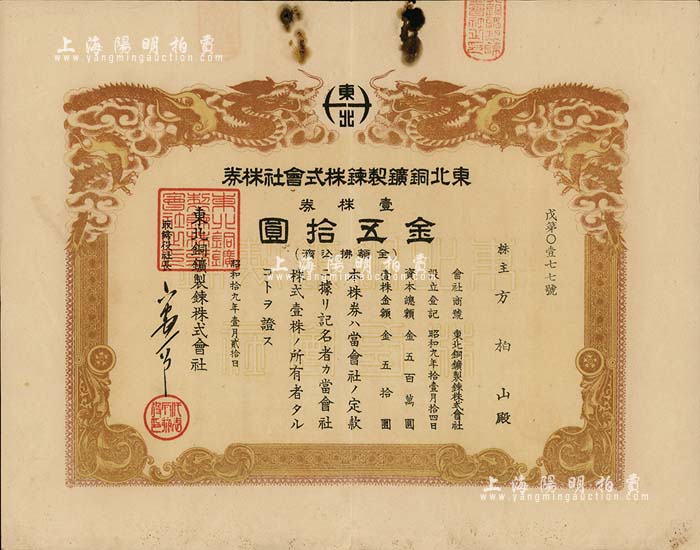 上海陽明拍賣
www.yangmingauction.com
東北
東北銅鑛製錬株式會社株券
壹株券
金五拾圓
(全額拂込濟)
戊第〇壹七七號
株主 方柏山殿
會社商號 東北銅鑛製錬株式會社
設立登記 昭和九年拾壹月拾四日
資本總額 金五百萬圓
壹株金額 金五拾圓
本株券ハ當會社ノ定款
ニ據リ記名者カ當會社
株式壹株ノ所有者タル
コトヲ證ス
昭和拾九年壹月貳拾日
東北銅鑛製錬株式會社
取締役社長
上海陽明拍賣
www.yangmingauction.com